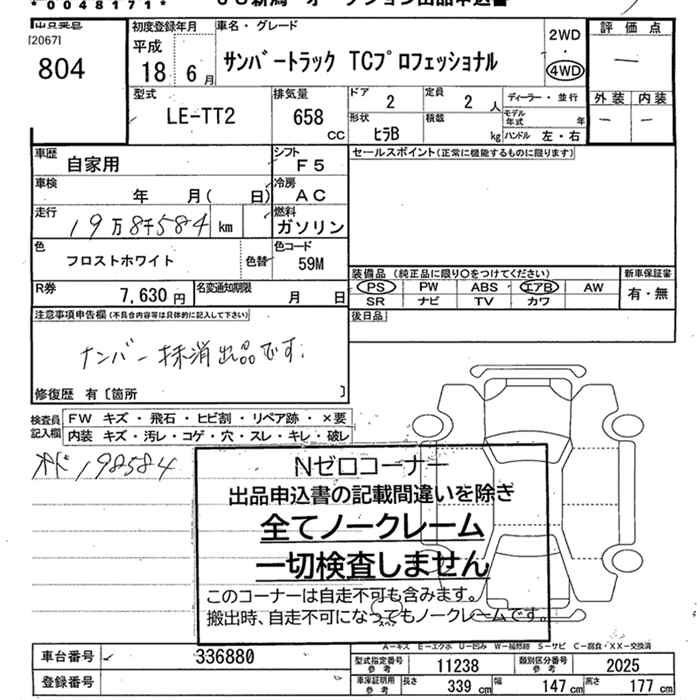 *0048171*
オークション出品申込書
[2067]
804
初度登録年月
平成
18 6 月
車名・グレード
サンバートラック TCプロフェッショナル
2WD
・
4WD
評価点
—
外装 内装
— —
型式
LE-TT2
排気量
658
CC
ドア 2
定員 2 人
形状 ヒラB
積載 kg
ディーラー・並行
モデル年式 年
ハンドル 左・右
車歴 自家用
シフト F5
セールスポイント(正常に機能するものに限ります)
車検 年 月( 日)
冷房 AC
走行 19万8千584 km
燃料 ガソリン
色 フロストホワイト 色替
色コード 59M
装備品 (純正品に限り○をつけてください)
PS PW ABS エアB AW
SR ナビ TV カワ
新車保証書
有・無
R券 7,630 円
名変通知期限 月 日
後日品
注意事項申告欄(不具合内容等は具体的に記入して下さい)
ナンバー抹消出品です.
修復歴 有〔箇所 〕
検査員記入欄
FW キズ・飛石・ヒビ割・リペア跡・×要
内装 キズ・汚レ・コゲ・穴・スレ・キレ・破レ
オド 198584
Nゼロコーナー
出品申込書の記載間違いを除き
全てノークレーム
一切検査しません
このコーナーは自走不可も含みます。
搬出時、自走不可になってもノークレームです。
A-キズ E-エクボ U-凹み W-補修跡 S-サビ C-腐食・XX-交換済
車台番号 336880
登録番号
型式指定番号 参考 11238
類別区分番号 参考 2025
車庫証明用 参考 長さ 339 cm 幅 147 cm 高さ 177 cm